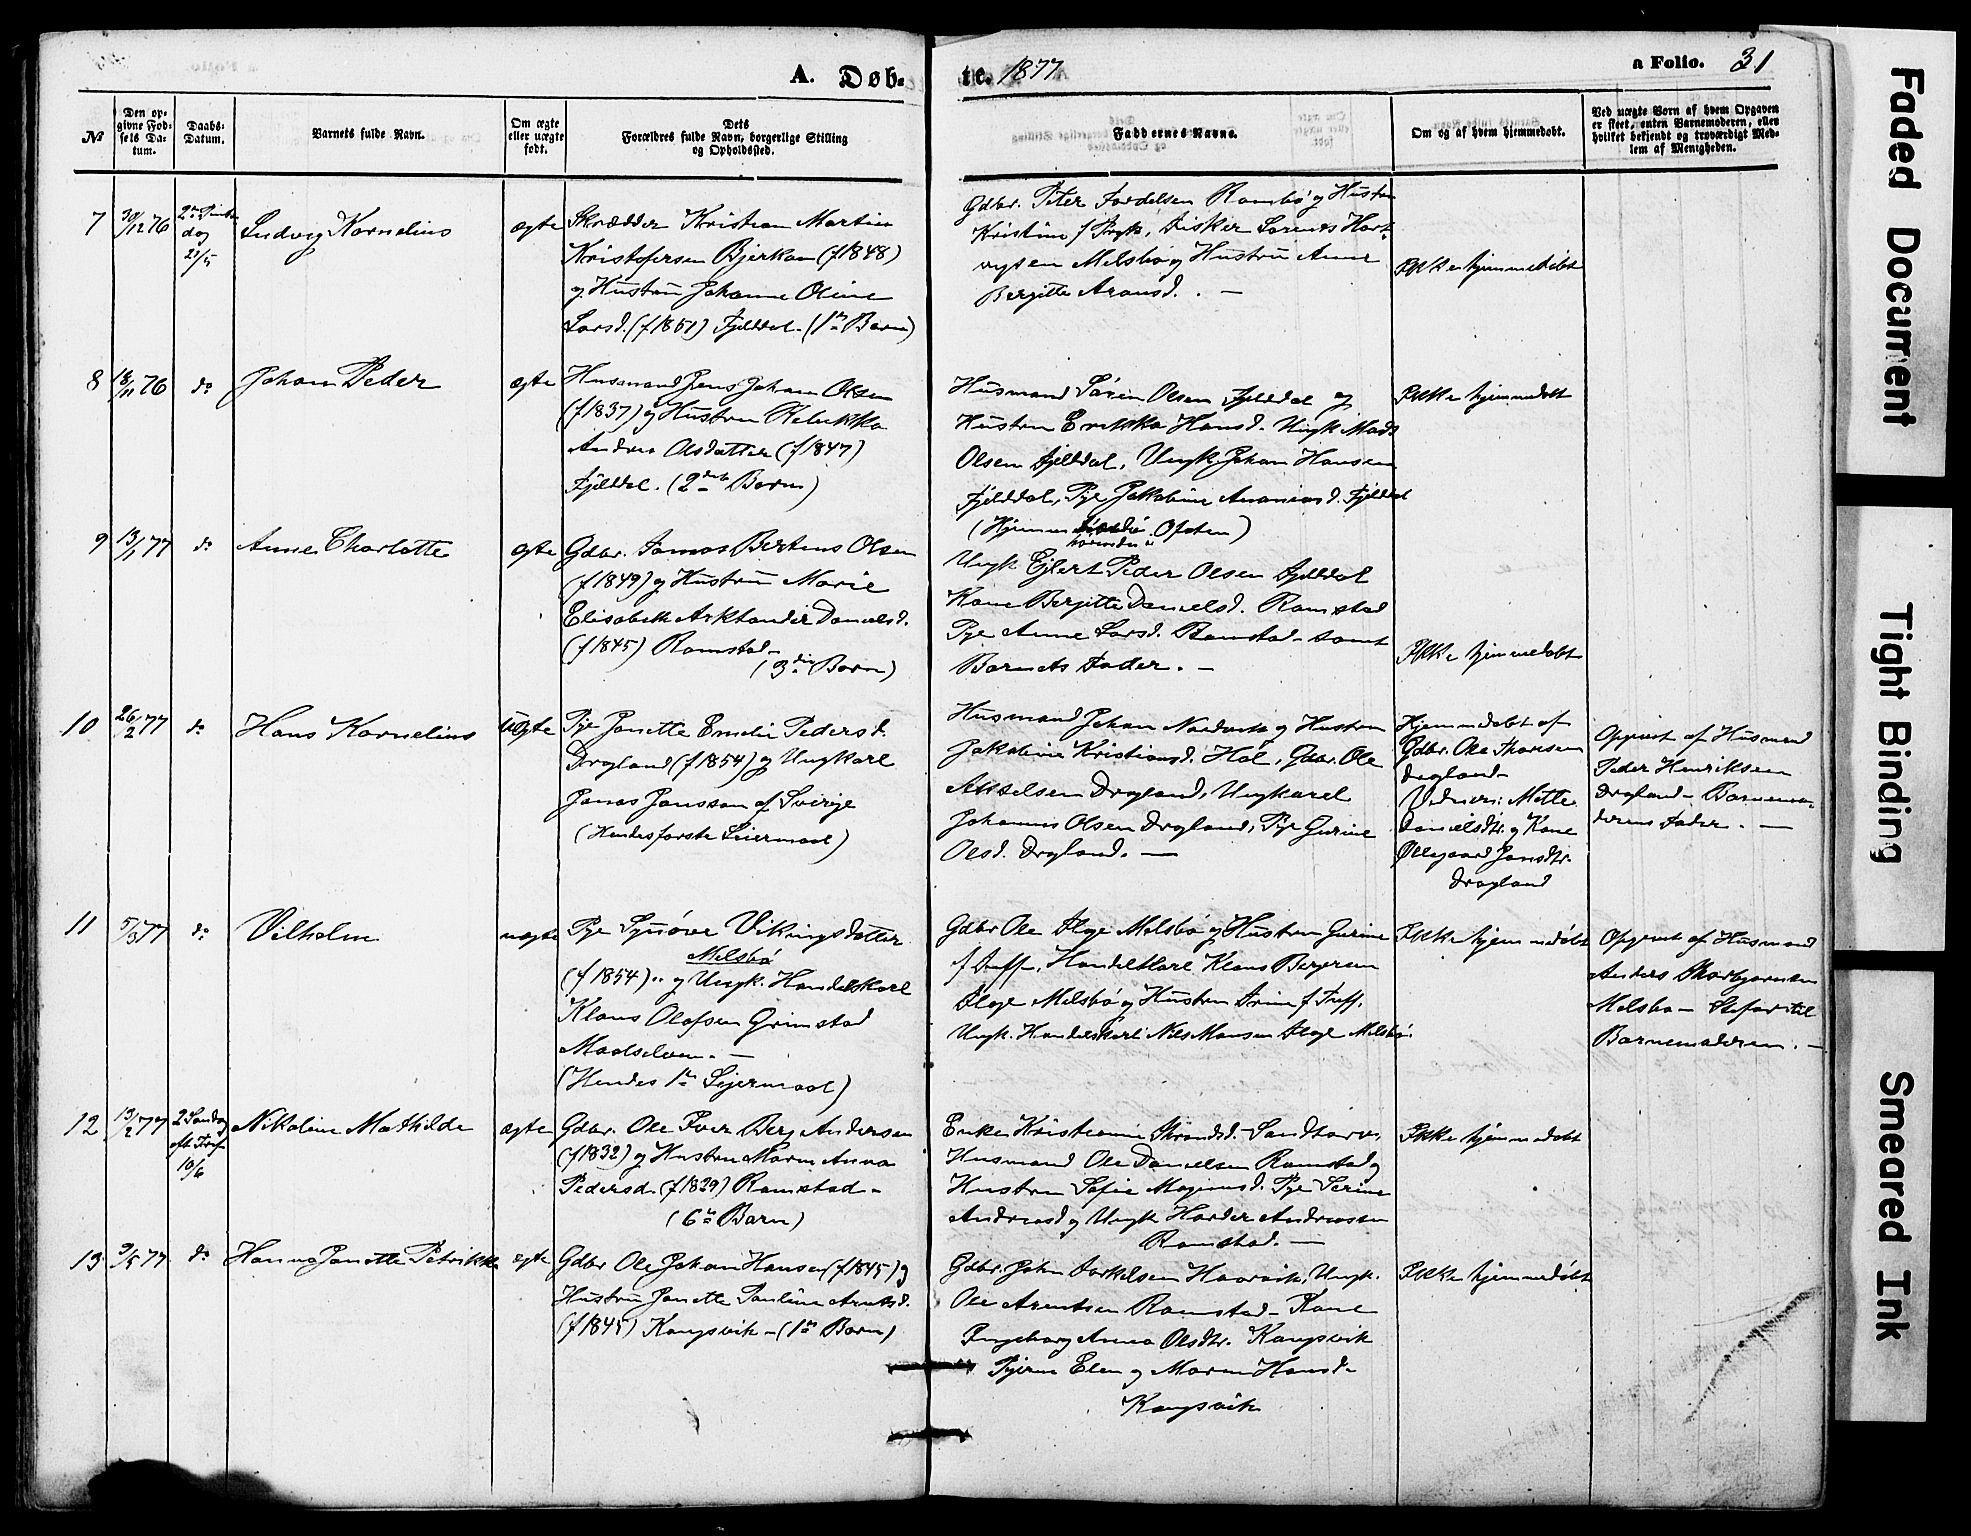 A. Døb-
te. 1877
a Folio. 31
№
Den op-
givne Fød-
sels Da-
tum.
Daabs-
Datum.
Barnets fulde Navn.
Om ægte
eller uægte
født.
Dets
Forældres fulde Navn, borgerlige Stilling
og Opholdssted.
Faddernes Navne.
Om og af hvem hjemmedøbt.
Ved uægte Børn af hvem Opgaven
er skeet, enten Barnemoderen, eller
hvilket bekjendt og troværdigt Med-
lem af Menigheden.
7
30/12 76
dag
21/5
Ludvig Kornelius
ægte
Skrædder Kristian Martin
Kristofersen Bjerkan (f 1848)
og Hustru Johanne Oline
Larsd. (f 1851) Fjelddal. (1ste Barn)
Gdbr. Peter Tordelsen Ramsbø og Hustru
Kristine f Fryk, Fisker Lorents Hart-
vigsen Melsbø og Hustru Anne
Bergitte Aronsd. . —
Ikke hjemmedøbt
8
18/11 76
do
Johan Peder
ægte
Husmand Jens Johan Olsen
(f 1837) og Hustru Rebekka
Andrea Olsdatter (f 1847)
Fjelddal. (2det Barn)
Husmand Søren Olsen Fjelddal og
Hustru Erikka Hansd. Ungk Mads
Olsen Fjelddal, Ungk Johan Hansen
Fjelddal, Pge Jakobine Ananiasd. Fjelddal
(Hjemmehørende i Ofoten)
Ikke hjemmedøbt
9
13/1 77
do
Anne Charlotte
ægte
Gdbr. Tomas Bertens Olsen
(f 1849) og Hustru Marie
Elisabeth Arktander Danielsd.
(f 1845) Ramstad –
(3die Barn)
Ungk Ejlert Peder Olsen Fjelddal
Kone Bergitte Danielsd. Ramstad
Pge Anne Larsd. Ramstad – samt
Barnets Fader. –
Ikke hjemmedøbt
10
26/2 77
do
Hans Kornelius
uægte
Pge Janette Emelie Pedersd.
Drogland (f 1854) og Ungkarl
Jonas Jonsson af Sverige
(Hendes første Leiermaal)
Husmand Johan Nordvik og Hustru
Jakobine Kristiansd. Hol, Gdbr. Ole
Akselsen Drogland, Ungkarl
Johannes Olsen Drogland, Pge Gurine
Olsd. Drogland. —
Hjemmedøbt af
Gdbr. Ole Thoresen
Drogland –
Vidner: Mette
Danielsdtr. og Kone
Øllegaard Jonsdtr.
Drogland
Opgivet af Husmand
Peder Henriksen
Drogland – Barnemo-
derens Fader. —
11
5/3 77
do
Vilhelm
uægte
Pge Synøve Vikingsdatter
Melsbø
(f 1854) og Ungk. Handelskarl
Klaus Olafsen Grimstad
Maalselven. —
(Hendes 1ste Lejermaal)
Gdbr Ole Hloge Melsbø og Hustru Gurine
f Juff, Handelskarl Klaus Bergersen
Melsbø og Hustru Trine f Juff.
Ungk. Handelskarl Nils Monsen Melsbø.
Ikke hjemmedøbt
Opgivet af Husmand
Anders
Melsbø – Stefar til
Barnemoderen. –
12
13/2 77
2 Søndag
eft. Tref.
10/6
Nikoline Mathilde
ægte
Gdbr. Ole Iver Berg Andersen
(f 1832) og Hustru Maren Anna
Pedersd. (f 1829) Ramstad –
(6te Barn)
Enke Kristianne Sandtorv,
Husmand Ole Danielsen Ramstad og
Hustru Sofie Magnusd. Pge Serine
Andreasd og Ungk Hartvig Andreassen
Ramstad. —
Ikke hjemmedøbt
13
9/5 77
do
Hanna Janette Petrikke
ægte
Gdbr Ole Johan Hansen (f 1845) og
Hustru Janette Pauline Arntsd.
(f 1845) Kongsvik – (1ste Barn)
Gdbr. John Torkelsen Haarvik, Ungk.
Ole Arentsen Ramstad – Kone
Ingeborg Anna Olsdtr. Kongsvik
Pigerne Elen og Maren Hansd –
Kongsvik
Ikke hjemmedøbt
Faded Document
Tight Binding
Smeared Ink